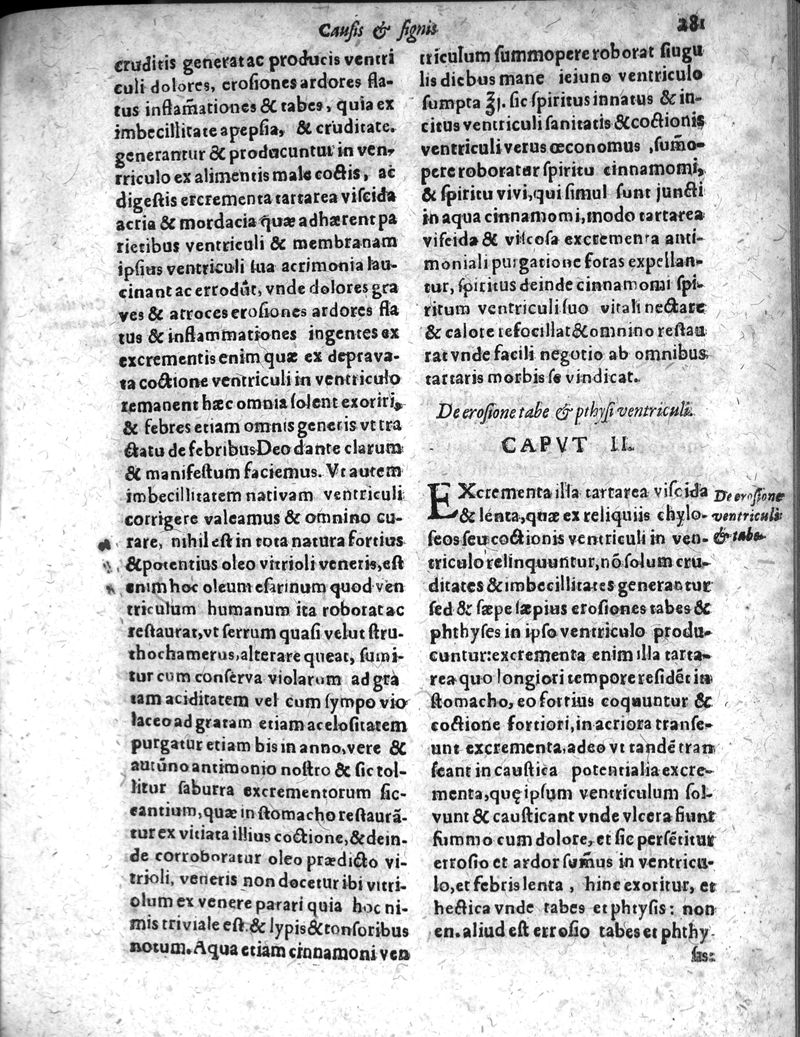 Causis & signis
281
cruditis generat ac producis ventri
culi dolores, erosiones ardores fla-
tus inflam̃ationes & tabes, quia ex
imbecillitate apepsia, & cruditate.
generantur & producuntur in ven-
triculo ex alimentis male coctis, ac
digestis ercrementa tartarea viscida
acria & mordacia q̃uæ adhærent pa
rietibus ventriculi & membranam
ipsius ventriculi sua acrimonia lau-
cinant ac errodũt, vnde dolores gra
ves & atroces erosiones ardores fla
tus & inflammationes ingentes ex
excrementis enim quæ ex deprava-
ta coctione ventriculi in ventriculo
remanent hæc omnia solent exoriri,
& febres etiam omnis generis vt tra
ctatu de febribus Deo dante clarum
& manifestum faciemus. Vt autem
imbecillitatem nativam ventriculi
corrigere valeamus & omnino cu-
rare, nihil est in tota natura fortius
& potentius oleo vitrioli veneris, est
enim hoc oleum esurinum quod ven
triculum humanum ita roborat ac
restaurat, vt ferrum quasi velut stru-
thochamerus, alterare queat, sumi-
tur cum conserva violarum ad gra
tam aciditatem vel cum sympo vio
laceo ad gratam etiam acelositatem
purgatur etiam bis in anno, vere &
autũno antimonio nostro & sic tol-
litur saburra excrementorum sic-
cantium, quæ in stomacho restaurã-
tur ex vitiata illius coctione, & dein-
de corroboratur oleo prædicto vi-
trioli, veneris non docetur ibi vitri-
olum ex venere parari quia hoc ni-
mis triviale est. & lypis & tonsoribus
notum. Aqua etiam cinnamoni ven
triculum summopere roborat siugu
lis diebus mane ieiuno ventriculo
sumpta ʒj. sic spiritus innatus & in-
citus ventriculi sanitatis & coctionis
ventriculi verus œconomus, sum̃o-
pere roboratur spiritu cinnamomi,
& spiritu vivi, qui simul sunt juncti
in aqua cinnamomi, modo tartarea
viscida & viscosa excrementa anti-
moniali purgatione foras expellan-
tur, spiritus deinde cinnamomi spi-
ritum ventriculi suo vitali nectare
& calore refocillat & omnino restau
rat vnde facili negotio ab omnibus
tartaris morbis se vindicat.
De erosione tabe & pthysi ventriculi.
CAPVT II.
EXcrementa illa tartarea viscida
& lenta, quæ ex reliquiis chylo-
seos seu coctionis ventriculi in ven-
triculo relinquuntur, nõ solum cru-
ditates & imbecillitates generantur
sed & sæpe sæpius erosiones tabes &
phthyses in ipso ventriculo produ-
cuntur: excrementa enim illa tarta-
rea quo longiori tempore residẽt in
stomacho, eo fortius coquuntur &
coctione fortiori, in acriora transe-
unt excrementa, adeo vt tandẽ tran
seant in caustica potentialia excre-
menta, quę ipsum ventriculum sol-
vunt & causticant vnde vlcera fiunt
summo cum dolore, et sic persẽtitur
errosio et ardor sum̃us in ventricu-
lo, et febris lenta, hinc exoritur, et
hectica vnde tabes et phtysis: non
en. aliud est errosio tabes et phthy-
sis:
De erosione
ventriculi
& tabe.